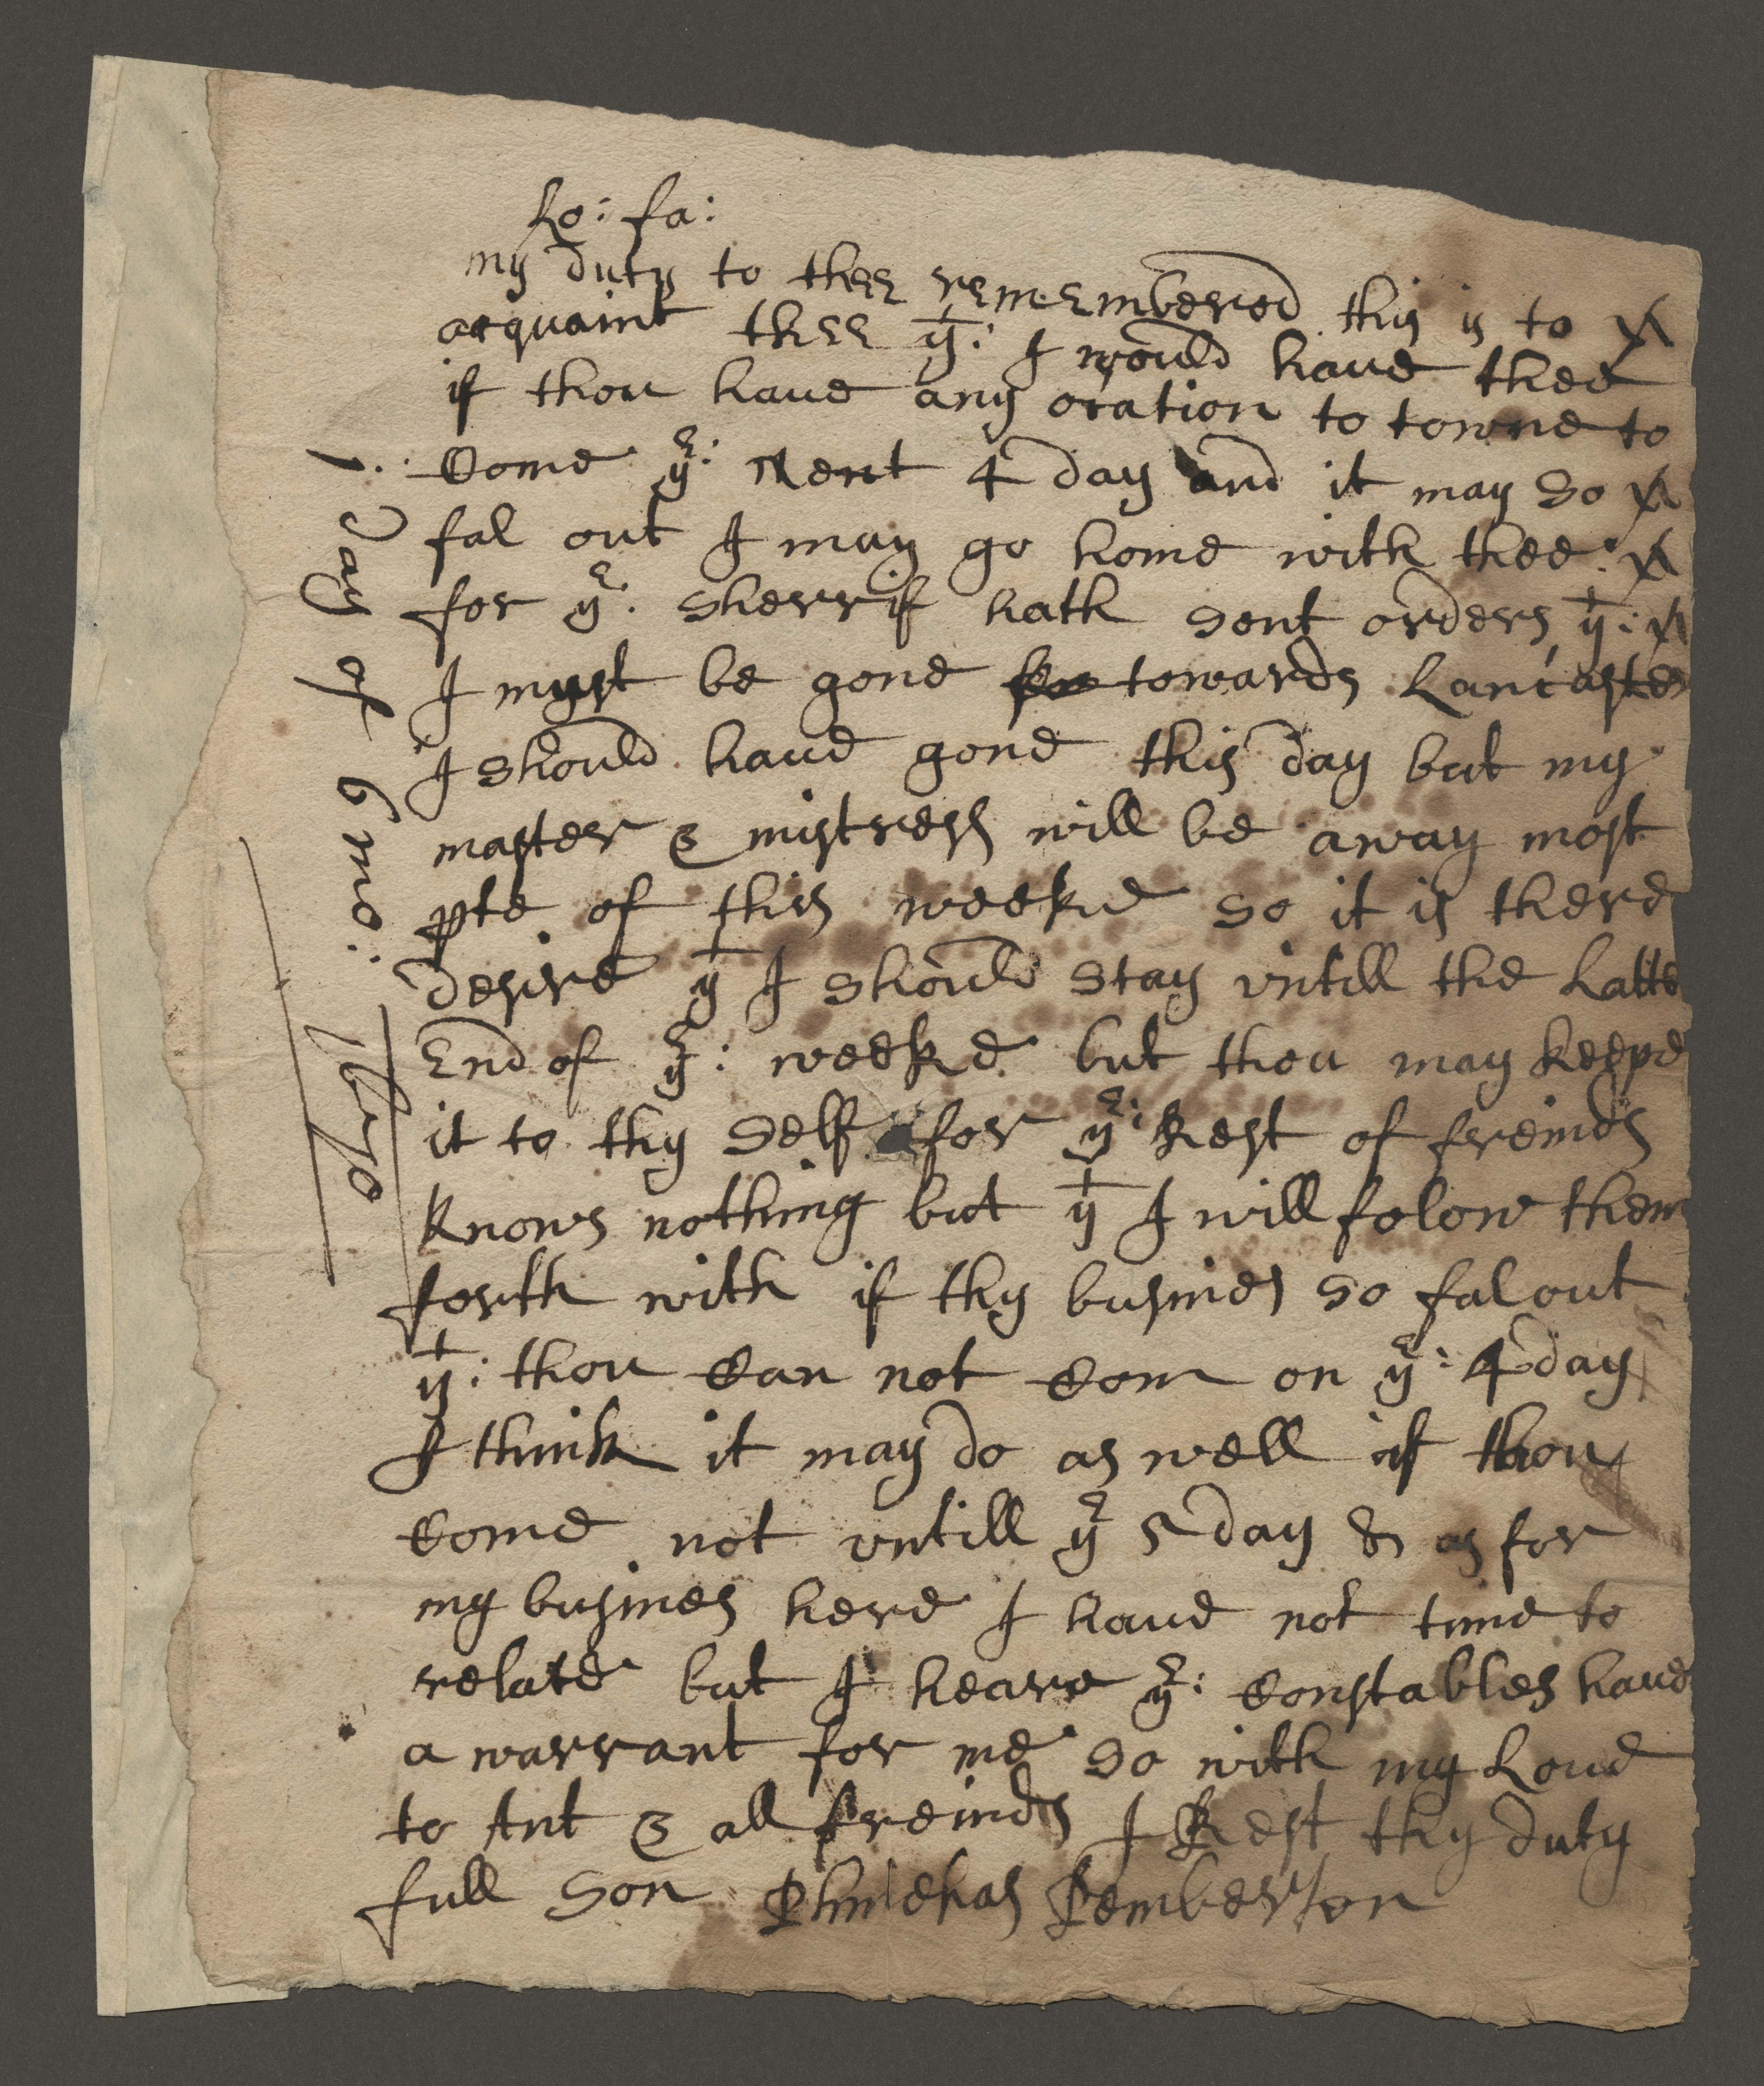 Lo: fa:
my duty to thee remembered this is to
acquaint thee yt: I would have thee
if thou have any ocation to towne to
Come ye: Next 4 day and it may so
fal out I may go home with thee
for ye: sherrif hath sent orders yt:
I must be gone for towards Lancaster
I should have gone this day but my
master & mistress will be away most
pte of this weeke so it is there
desire yt I should stay vntill the Latte
End of ye: weeke but thou may keepe
it to thy self for ye: Rest of freinds
knows nothing but yt I will folow them
forth with if thy busines so fal out
yt: thou Can not Com on ye: 4 day
I think it may do as well if thou
Come not vntill ye 5 day & as for
my busines here I have not time to
relate but I heare ye: Constables have
a warrant for me so with my Love
to Ant & all freinds I Rest thy duty
full son Phinehas Pemberton
day of 6 mo:
1670